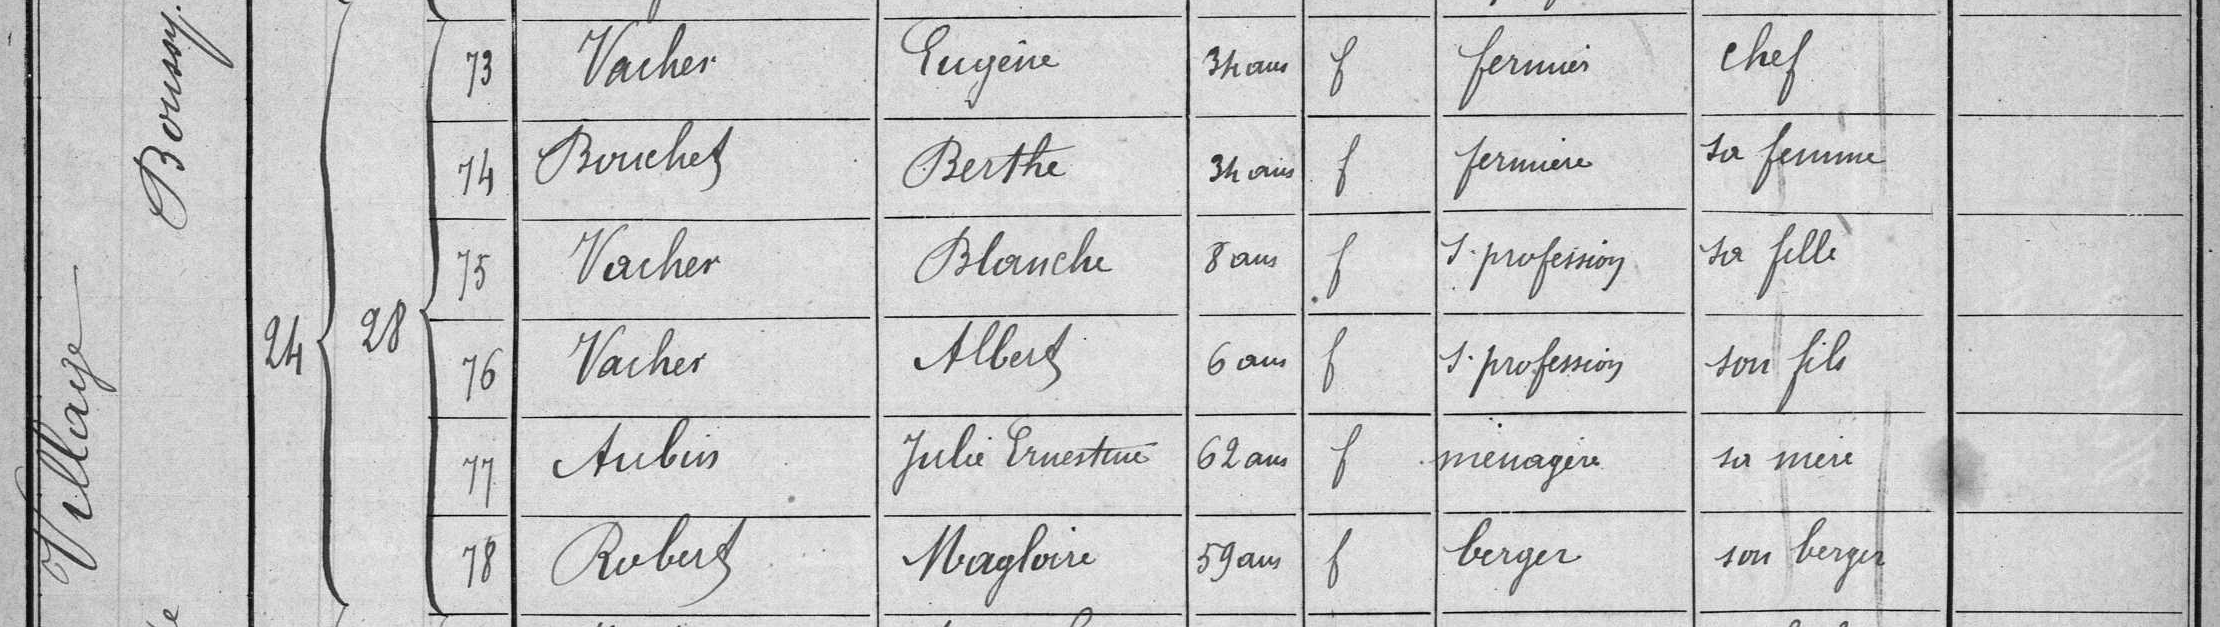 Village
Boussy
24
28
73 Vacher Eugène 34 ans f fermier chef
74 Bouchet Berthe 34 ans f fermière sa femme
75 Vacher Blanche 8 ans f s. profession sa fille
76 Vacher Albert 6 ans f s. profession son fils
77 Aubin Julie Ernestine 62 ans f ménagère sa mère
78 Robert Magloire 59 ans f berger son berger